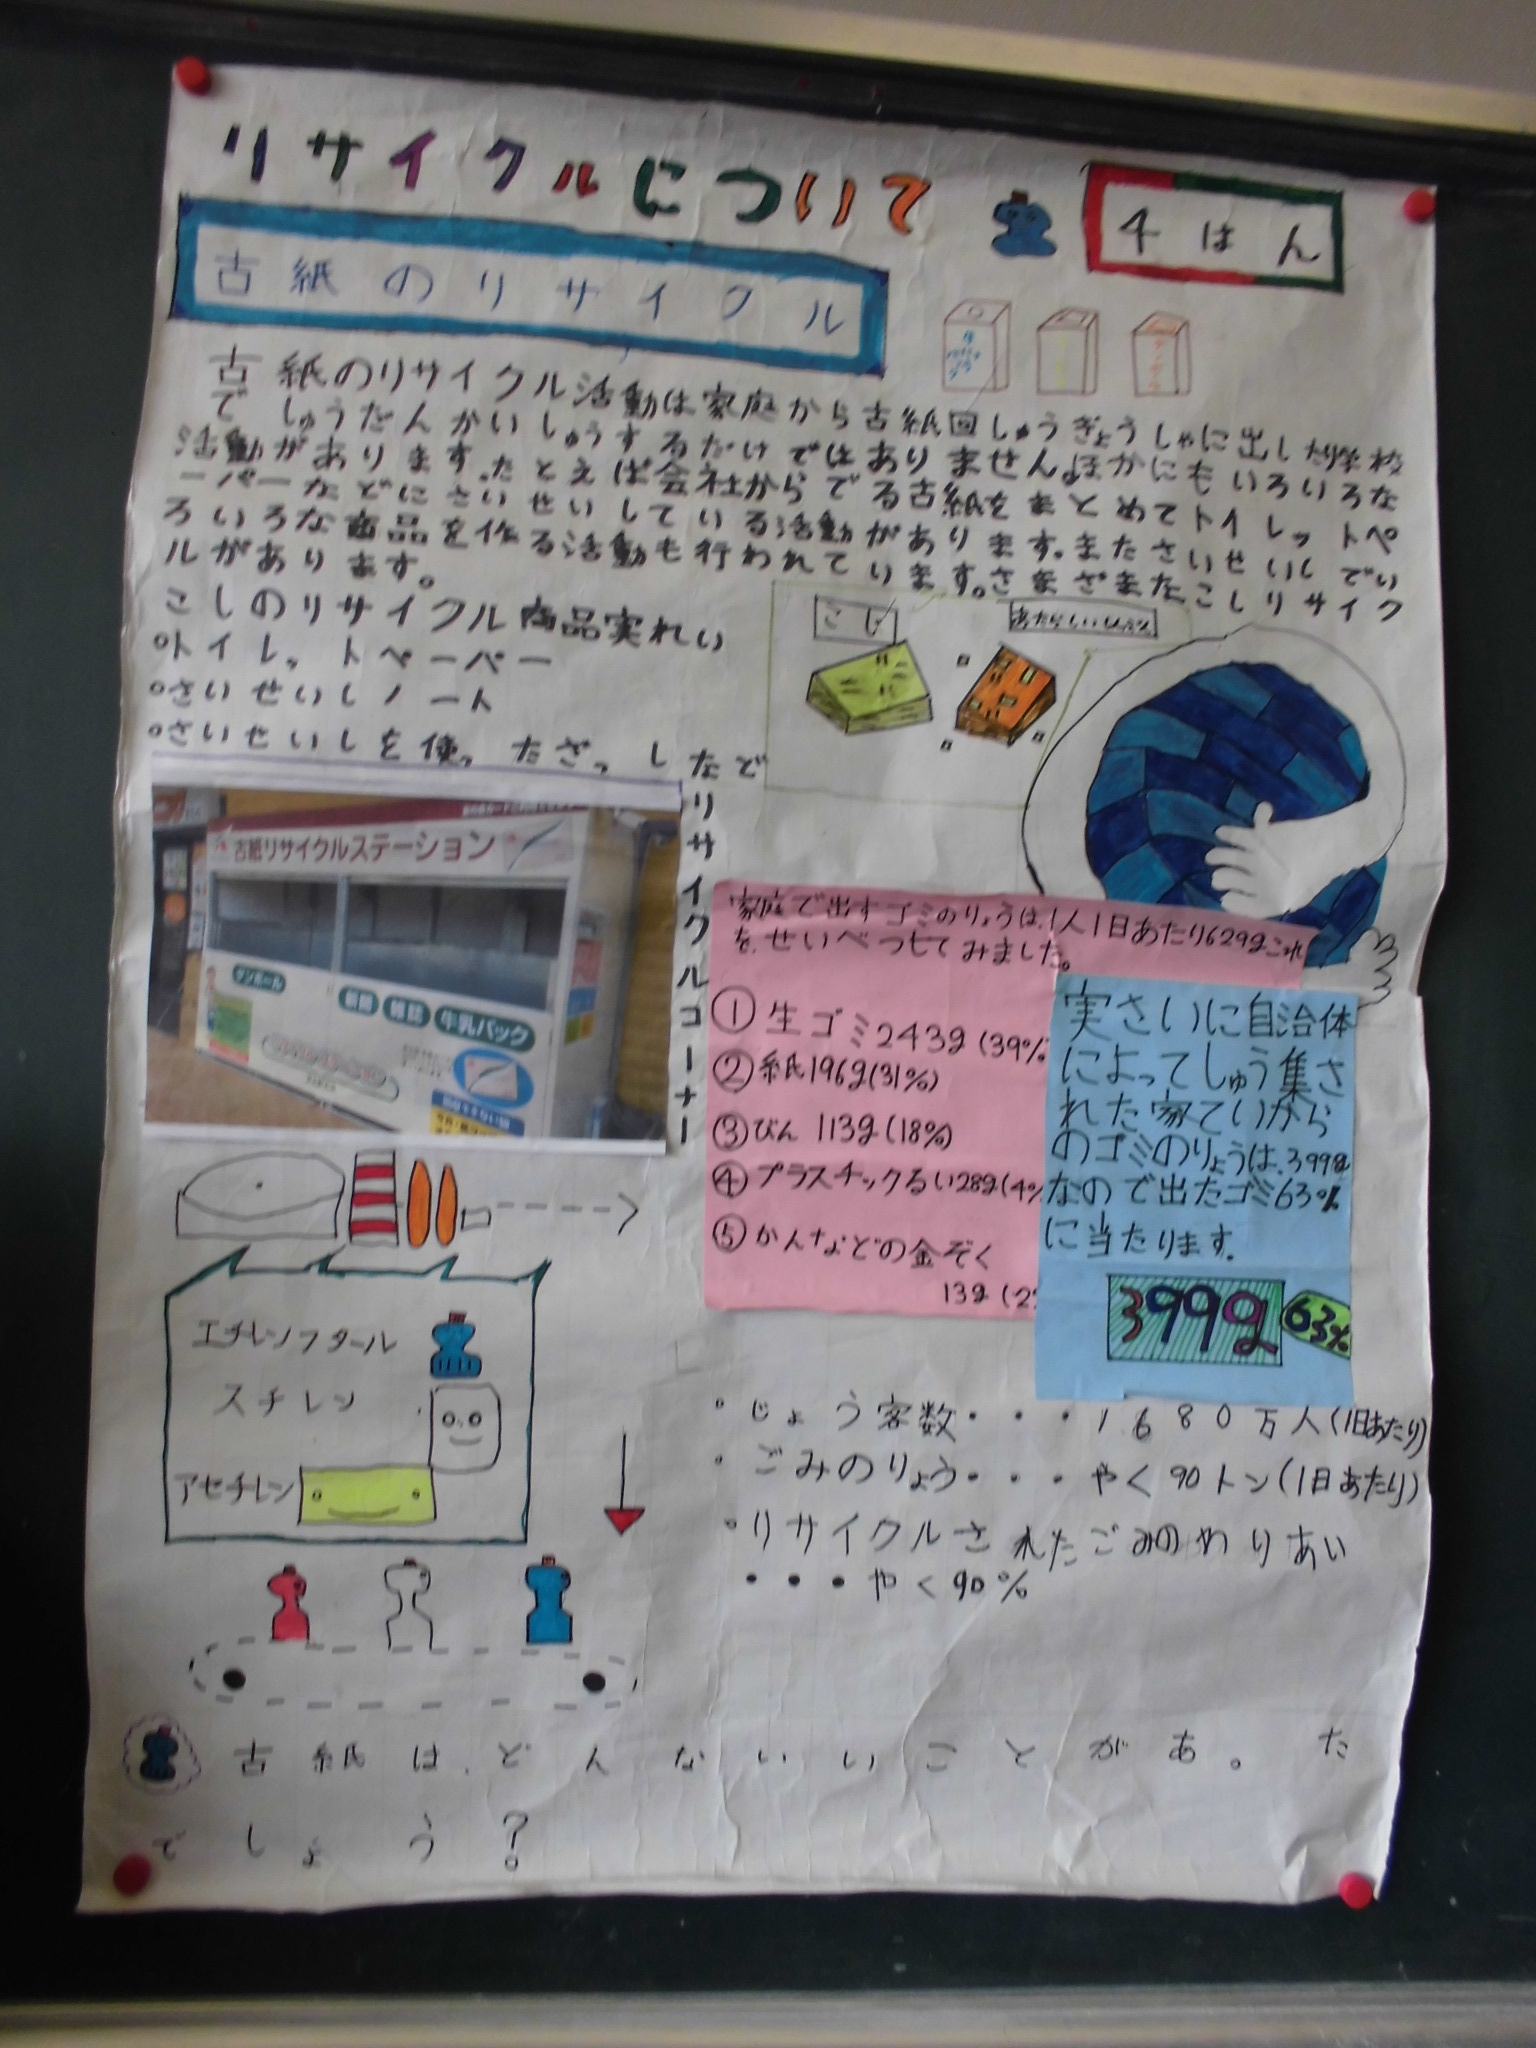 リサイクルについて
4はん
古紙のリサイクル
古紙のリサイクル活動は家庭から古紙回しゅうぎょうしゃに出したり学校
でしゅうだんかいしゅうするだけではありません。ほかにもいろいろな
活動があります。たとえば会社からでる古紙をまとめてトイレットペ
ーパーなどにさいせいしている活動があります。またさいせいしでい
ろいろな商品を作る活動も行われています。さまざまたこしリサイク
ルがあります。
こしのリサイクル商品実れい
トイレットペーパー
さいせいしノート
さいせいしを使ったざっしなど
こし
リサイクルコーナー
古紙リサイクルステーション
ダンボール
新聞 雑誌 牛乳パック
家庭で出すゴミのりょうは、1人1日あたり629gこれ
を、せいべつしてみました。
①生ゴミ243g(39%
②紙196g(31%)
③びん 113g(18%)
④プラスチックるい28g(4%
⑤かんなどの金ぞく
13g(2
実さいに自治体
によってしゅう集さ
れた家ていから
のゴミのりょうは、399g
なので出たゴミ63%
に当たります。
399g 63%
エチレンフタール
スチレン
アセチレン
・じょう客数・・・1680万人(1日あたり)
・ごみのりょう・・・やく90トン(1日あたり)
・リサイクルされたごみのわりあい
・・・やく90%
古紙は、どんないいことがあった
でしょう?